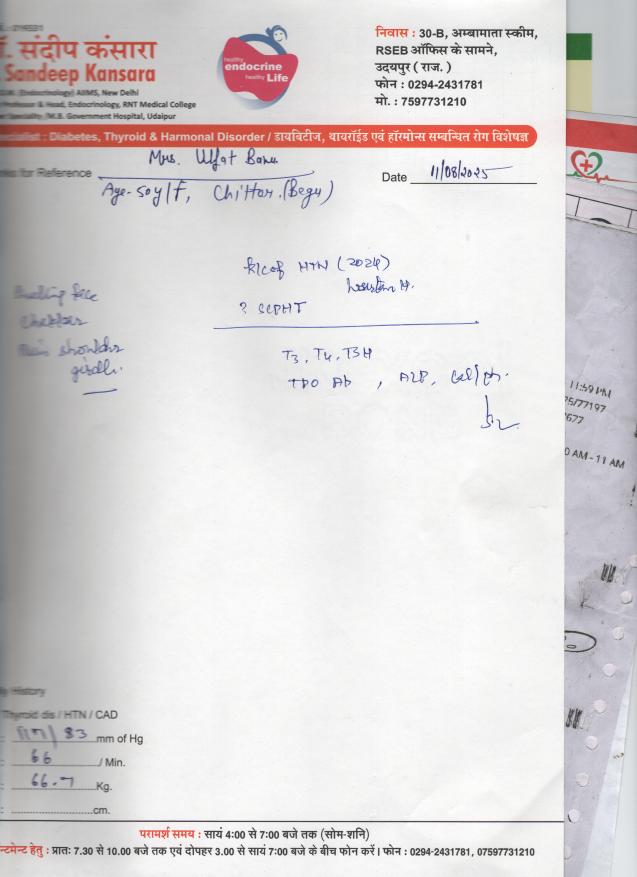 डॉ. संदीप कंसारा
Sandeep Kansara
(Endocrinology) AIIMS, New Delhi
Professor & Head, Endocrinology, RNT Medical College
Speciality /M.B. Government Hospital, Udaipur
healthy
endocrine
healthy Life
निवास : 30-B, अम्बामाता स्कीम,
RSEB ऑफिस के सामने,
उदयपुर ( राज. )
फोन : 0294-2431781
मो. : 7597731210
Specialist : Diabetes, Thyroid & Harmonal Disorder / डायबिटीज, थायरॉईड एवं हॉरमोन्स सम्बन्धित रोग विशेषज्ञ
for Reference Mrs. Ulfat Banu
Date 11/08/2025
Age-50y/F, Chittor.(Begu)
k/c/of HTN (2024)
? SCPHT
face
Pain shoulder
girdle.
T3, T4, TSH
TPO Ab , ALP, Cal/ph.
11:59 PM
75/77197
677
0 AM - 11 AM
History
Thyroid dis / HTN / CAD
117/83 mm of Hg
66 / Min.
66.7 Kg.
cm.
परामर्श समय : सायं 4:00 से 7:00 बजे तक (सोम-शनि)
न्टमेन्ट हेतु : प्रातः 7.30 से 10.00 बजे तक एवं दोपहर 3.00 से सायं 7:00 बजे के बीच फोन करें। फोन : 0294-2431781, 07597731210